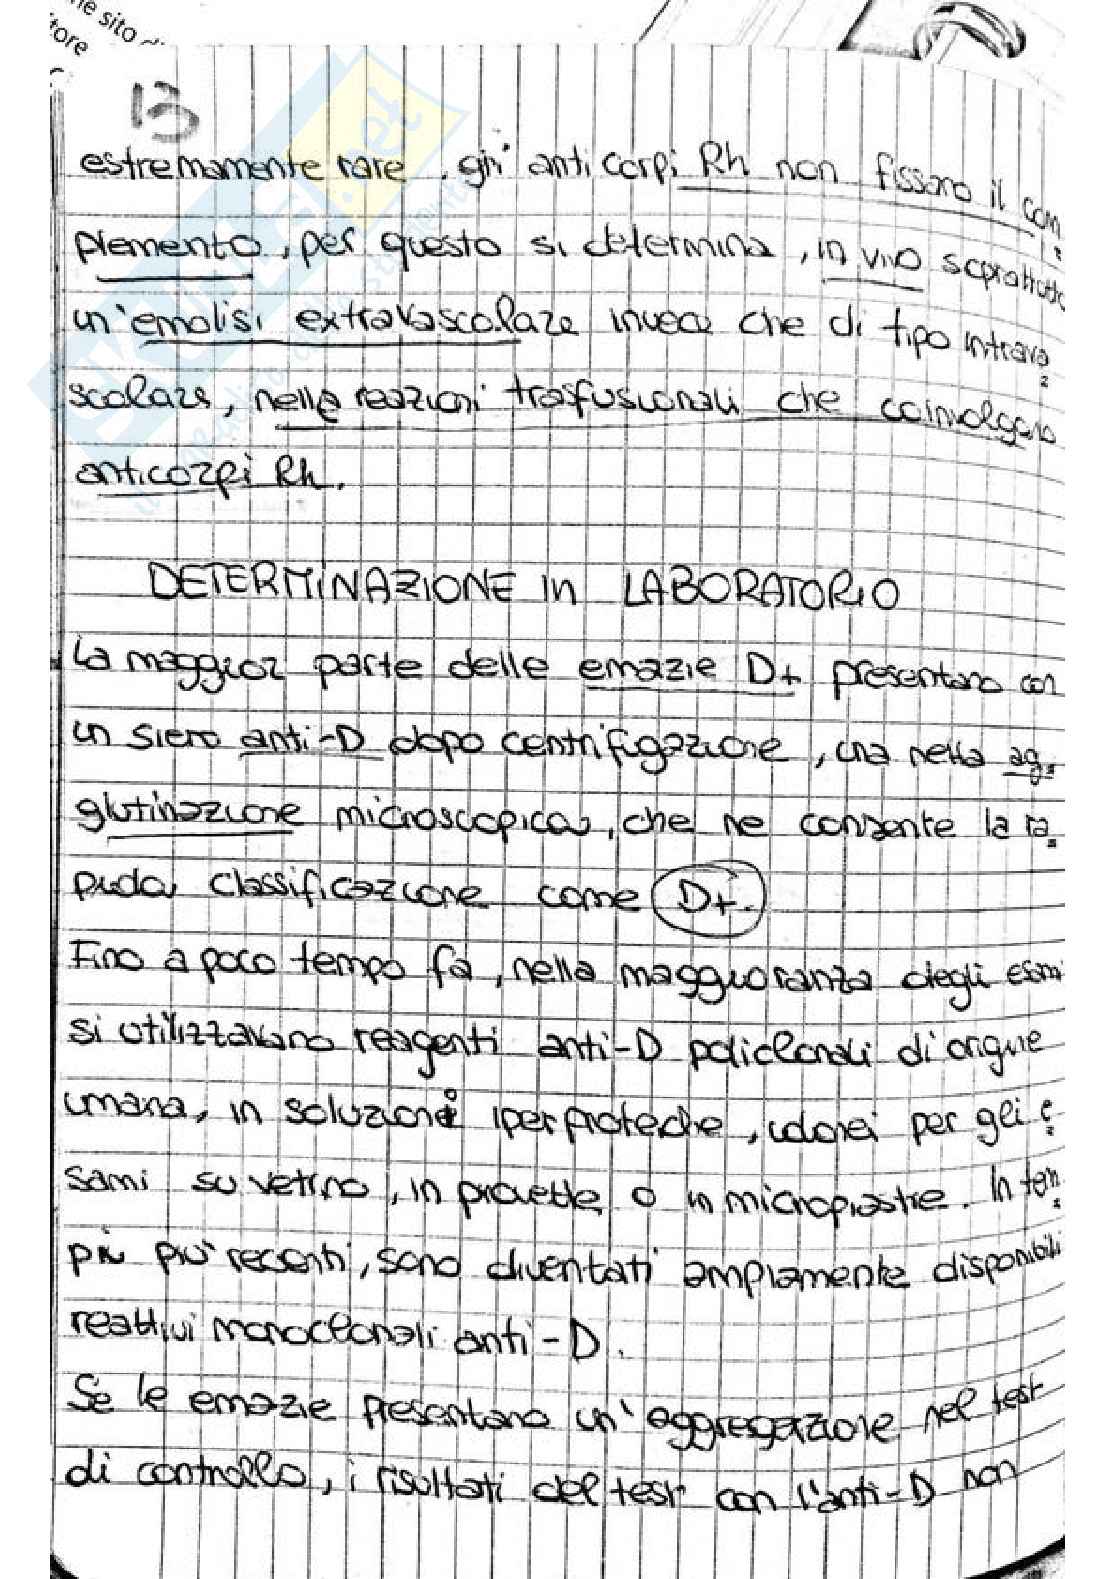 ne sito di
tore
13
estremamente rare, gli anticorpi Rh non fissano il com
plemento, per questo si determina, in vivo soprattutto
un'emolisi extravascolare invece che di tipo intrava
scolare, nelle reazioni trasfusionali che coinvolgono
anticorpi Rh.
DETERMINAZIONE in LABORATORIO
La maggior parte delle emazie D+ presentano con
un siero anti-D dopo centrifugazione, una netta ag
glutinazione microscopica, che ne consente la ra
pida classificazione come D+.
Fino a poco tempo fa, nella maggioranza degli esami
si utilizzavano reagenti anti-D policlonali di origine
umana, in soluzione iperproteiche, idonei per gli e
sami su vetrino, in provette o in micropiastre. In tem
pi più recenti, sono diventati ampiamente disponibili
reattivi monoclonali anti-D.
Se le emazie presentano un'aggregazione nel test
di controllo, i risultati del test con l'anti-D non